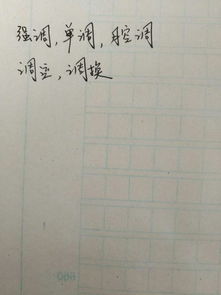 强调,单调,腔调
调查,调换